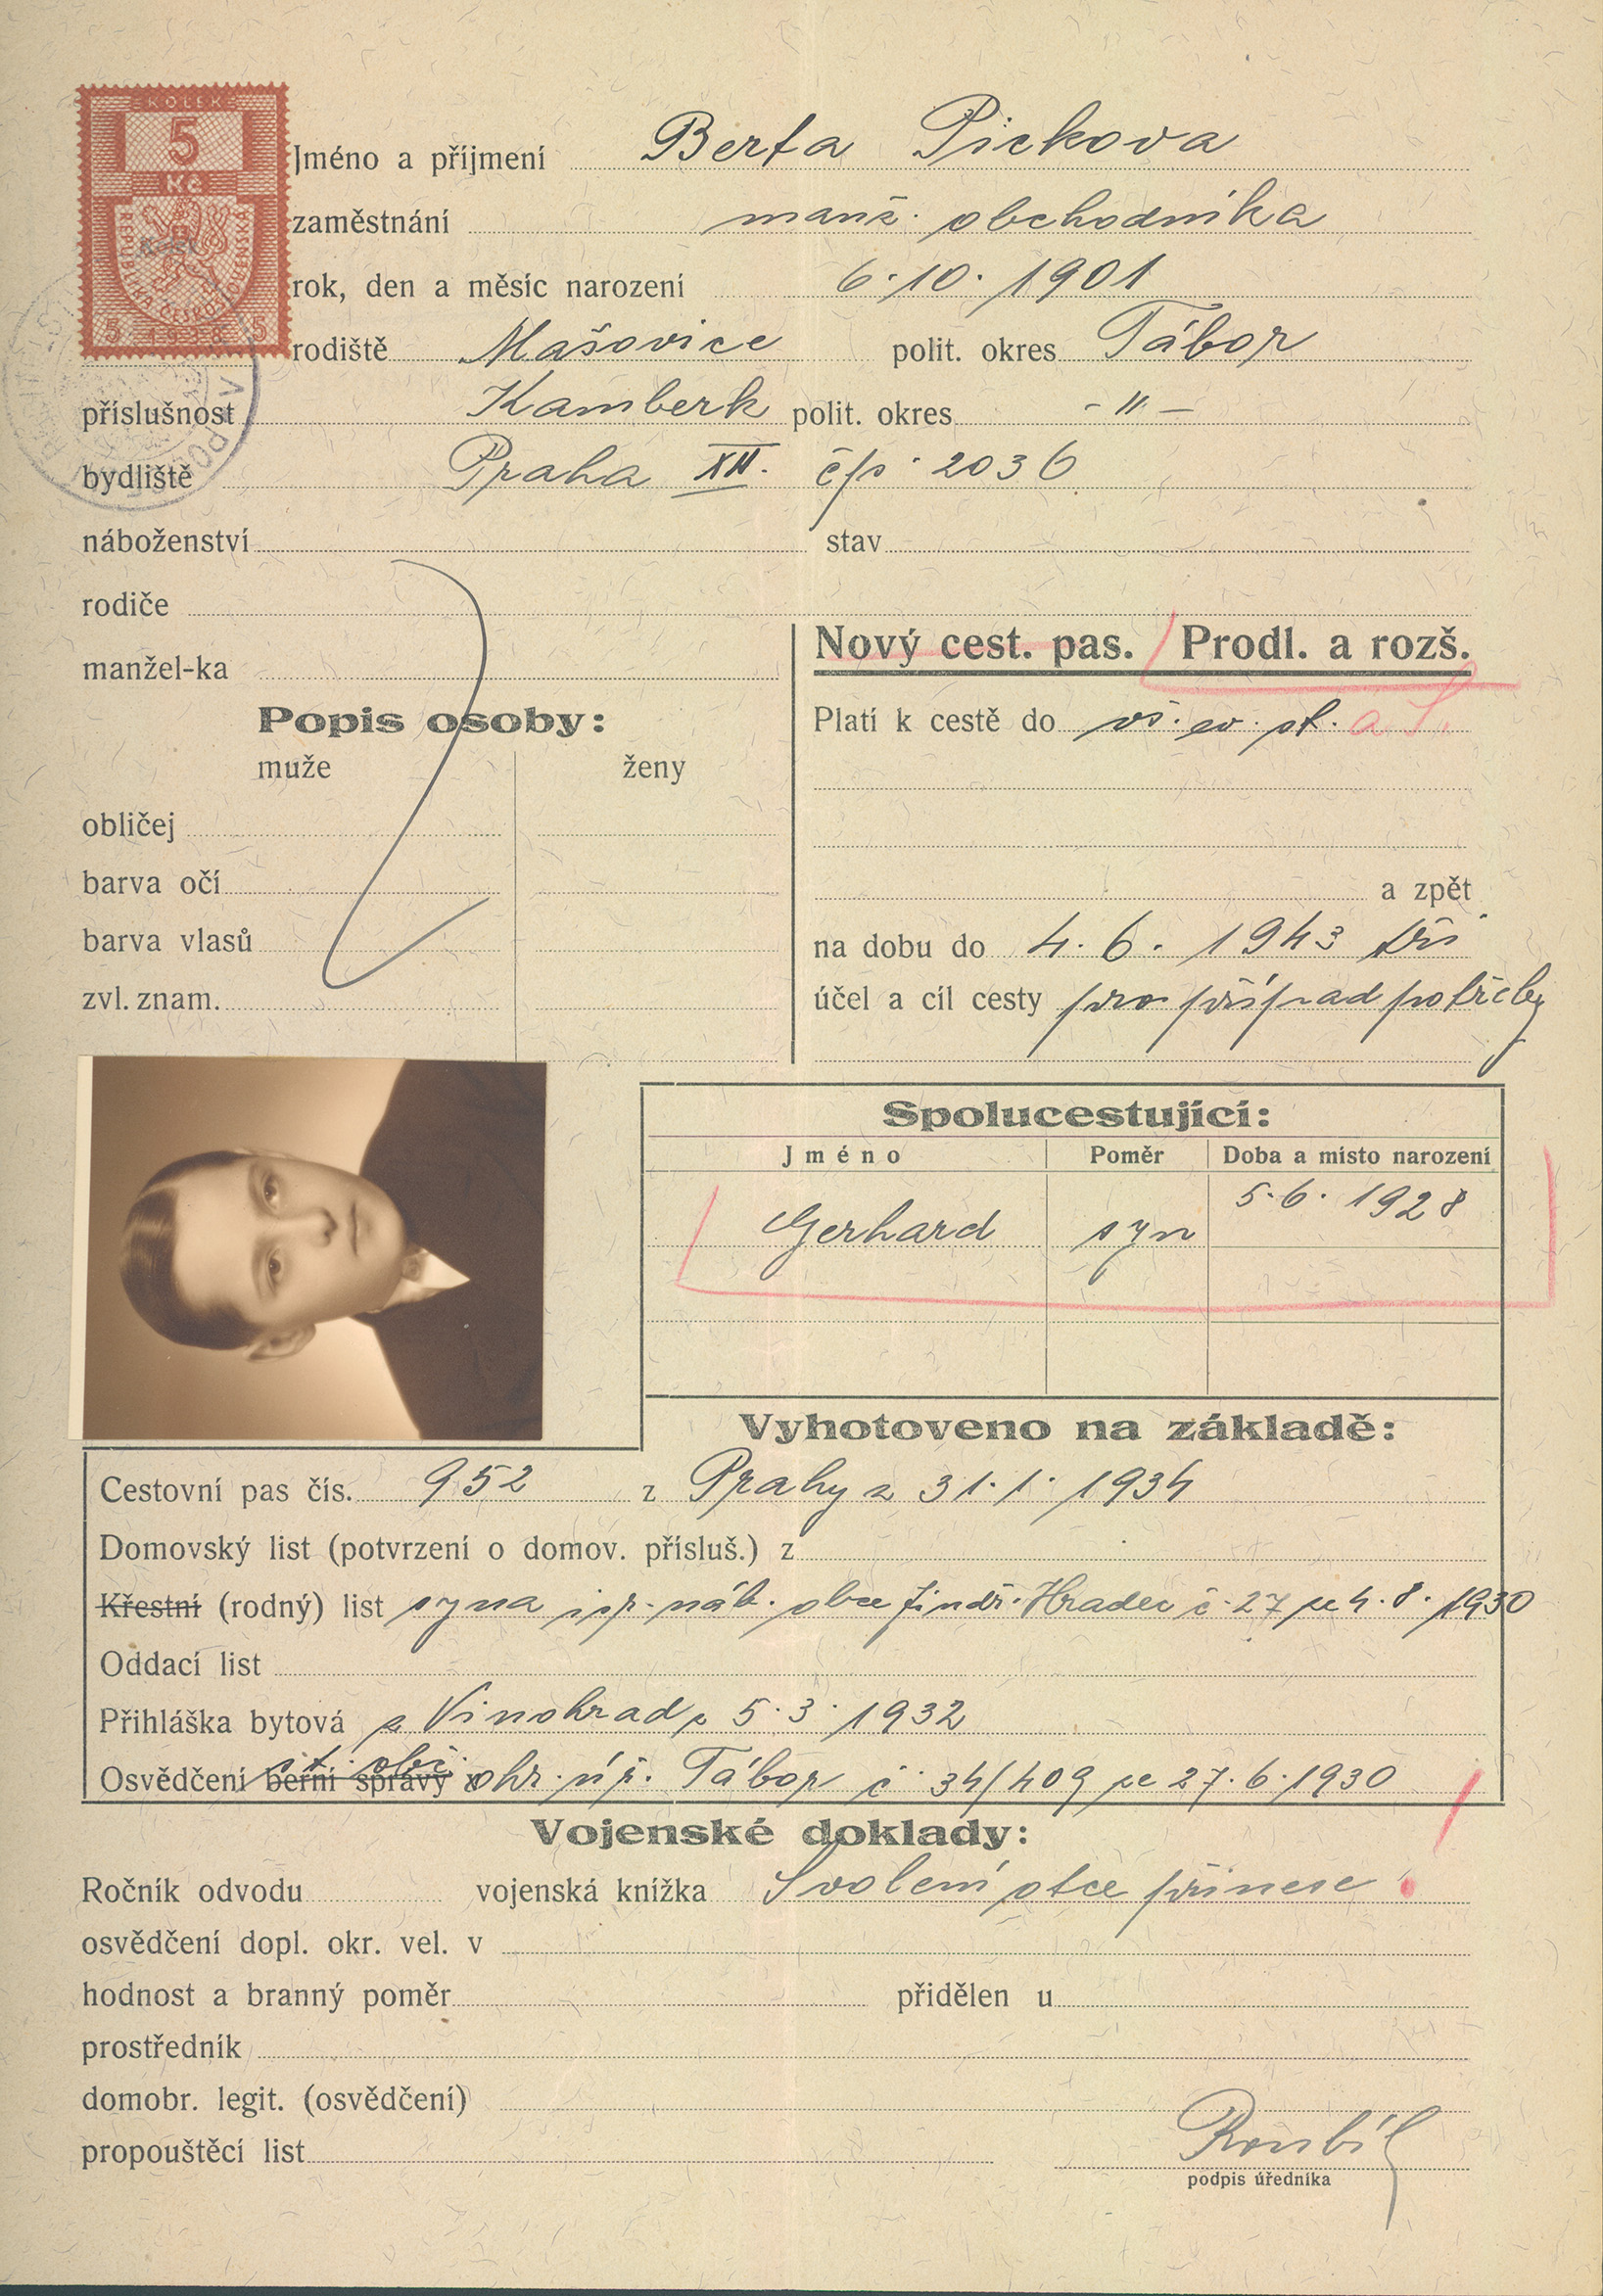 KOLEK
5
Kč
REPUBLIKA ČESKOSLOVENSKÁ
5 1938 5
Jméno a příjmení Berta Pickova
zaměstnání manž. obchodníka
rok, den a měsíc narození 6. 10. 1901
rodiště Mašovice polit. okres Tábor
příslušnost Kamberk polit. okres - " -
bydliště Praha XII. čp. 2036
náboženství stav
rodiče
manžel-ka
Nový cest. pas. Prodl. a rozš.
Popis osoby:
muže ženy
Platí k cestě do vš. ev. st. a
obličej
barva očí
a zpět
barva vlasů
na dobu do 4. 6. 1943 tři
zvl. znam.
účel a cíl cesty pro případ potřeby
Spolucestující:
Jméno Poměr Doba a místo narození
Gerhard syn 5. 6. 1928
Vyhotoveno na základě:
Cestovní pas čís. 952 z Prahy z 31. 1. 1934
Domovský list (potvrzení o domov. přísluš.) z
Křestní (rodný) list syna isr. náb. obce Jindř. Hradec č. 27 ze 4. 8. 1930
Oddací list
Přihláška bytová z Vinohrad z 5. 3. 1932
Osvědčení berní správy st. obč. okr. úř. Tábor č. 34/409 ze 27. 6. 1930
Vojenské doklady:
Ročník odvodu vojenská knížka Svolení otce přinese.
osvědčení dopl. okr. vel. v
hodnost a branný poměr přidělen u
prostředník
domobr. legit. (osvědčení)
propouštěcí list
podpis úředníka